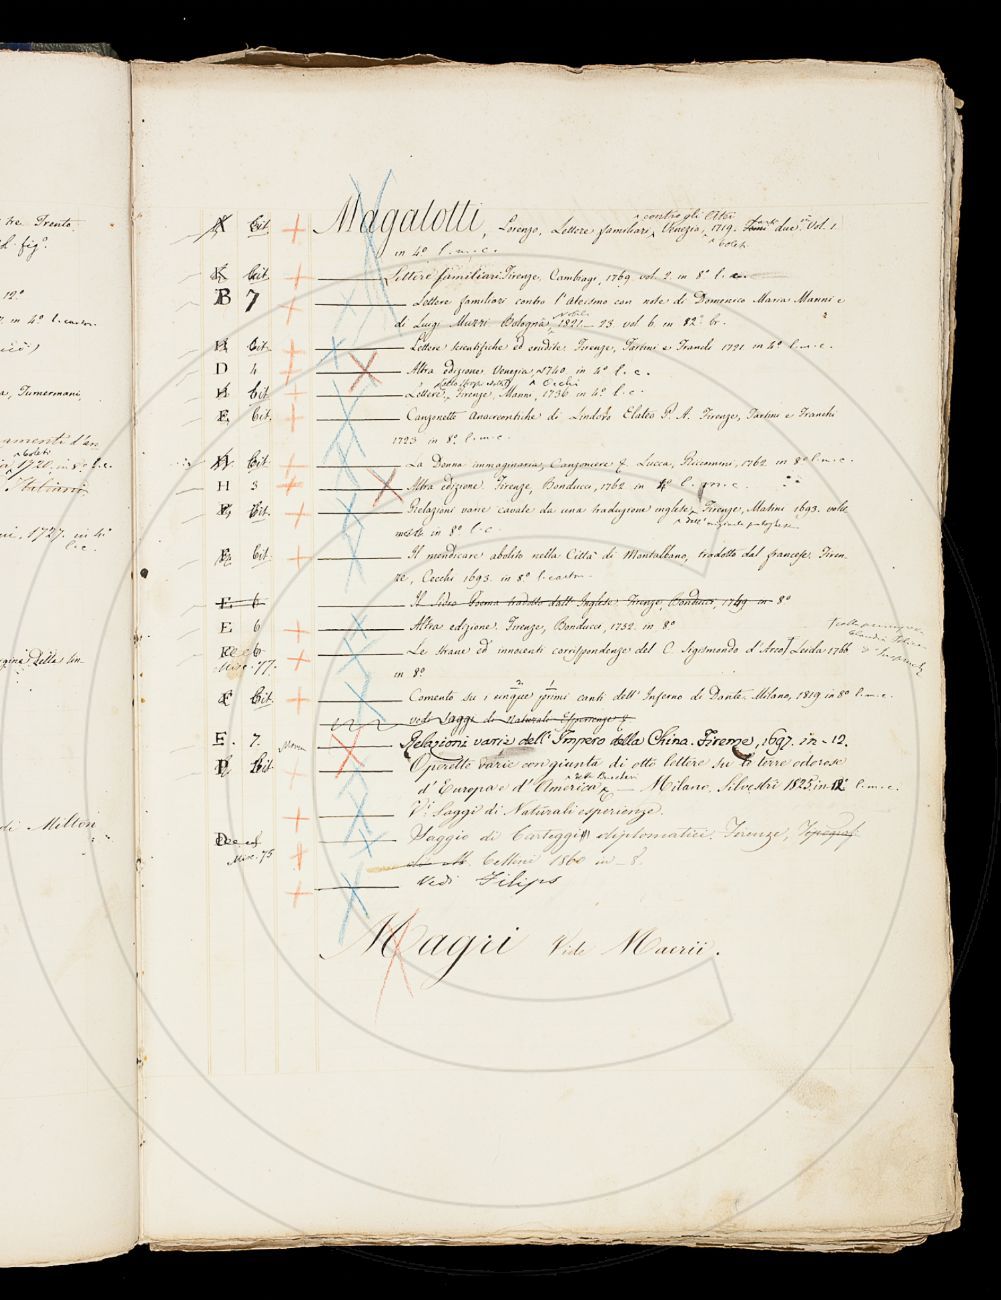 tre Trento
fig.º
12.º
in 4.º l. cartn.
Tumermani,
amenti d'an
coleti
1720. in 8.º l. c.
Italiani
1727. in 4.º
l. c.
Della
di Milton
contro gli Atei
K Cit. Magalotti, Lorenzo, Lettere familiari Venezia, 1719. Tomi due in Vol. 1.
parti
Colet.
in 4.º l. m. c.
K Cit. Lettere familiari. Firenze, Cambiagi, 1769 vol. 2. in 8.º l. c.
B 7 Lettere familiari contro l'Ateismo con note di Domenico Maria Manni e
di Luigi Muzzi Bologna, 1821 23 vol 6. in 82.º br.
Nobili
H Cit. Lettere scientifiche ed erudite. Firenze, Tartini e Franchi 1721 in 4.º l. m. c.
D 4 Altra edizione Venezia, 1740. in 4.º l. c.
Occhi
H Cit Lettere, Firenze, Manni, 1736 in 4.º l. c.
E, Cit. Canzonette Anacreontiche di Lindoro Elateo P. A. Firenze, Tartini e Franchi
1723 in 8.º l. m. c.
H Cit. La Donna immaginaria, Canzoniere &. Lucca, Riccomini, 1762. in 8.º l. m. c.
H 3 Altra edizione. Firenze, Bonducci, 1762. in 4.º l. m. c.
Cit. Relazioni varie cavate da una traduzione inglese, Firenze, Matini 1693. volte
dell' originale portoghese
in 8.º l. c.
E Cit. Il mendicare abolito nella Città di Montalbano, tradotto dal francese. Firen
ze, Cecchi 1693. in 8.º l. cartn.
E 6 Il Sidro Poema tradotto dall' Inglese. Firenze, Bonducci, 1749 in 8.º
E 6 Altra edizione. Firenze, Bonducci, 1752. in 8.º
Misc. 77. Le strane ed innocenti corrispondenze del C. Sigismondo d'Arco† Leida 1766
in 8.º
†colla
Claudia Felice
E Cit. Comento su i cinque primi canti dell' Inferno di Dante. Milano, 1819 in 8.º l. m. c.
2 1
vedi Saggi di Naturali Esperienze &
E. 7. Relazioni varie dell' Impero della China. Firenze, 1697. in-12.
P, Cit. Operette varie con giunta di otto lettere su le terre odorose
d'Europa e d'America — Milano, Silvestri 1825. in 12.º l. m. c.
V.i Saggi di Naturali esperienze.
Misc. 75 Saggio di Carteggi diplomatici. Firenze, Tipograf
M. Cellini 1860 in-8.
Vedi Filips
Magri Vide Macrii.